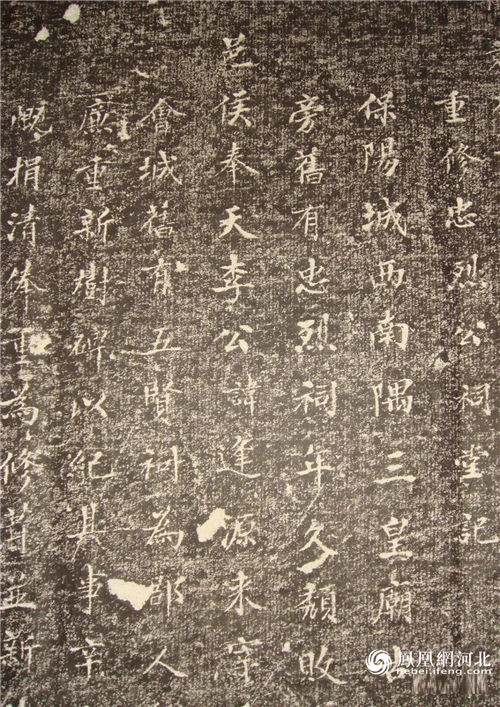 重修忠烈公祠堂記
保陽城西南隅三皇廟
旁舊有忠烈祠年久頹敗
邑侯奉天李公諱逢源来宰
會城舊有五賢祠為郡人
廉重新樹碑以紀其事辛
慨捐清俸重為修葺並新
鳳凰網河北
hebei.ifeng.com